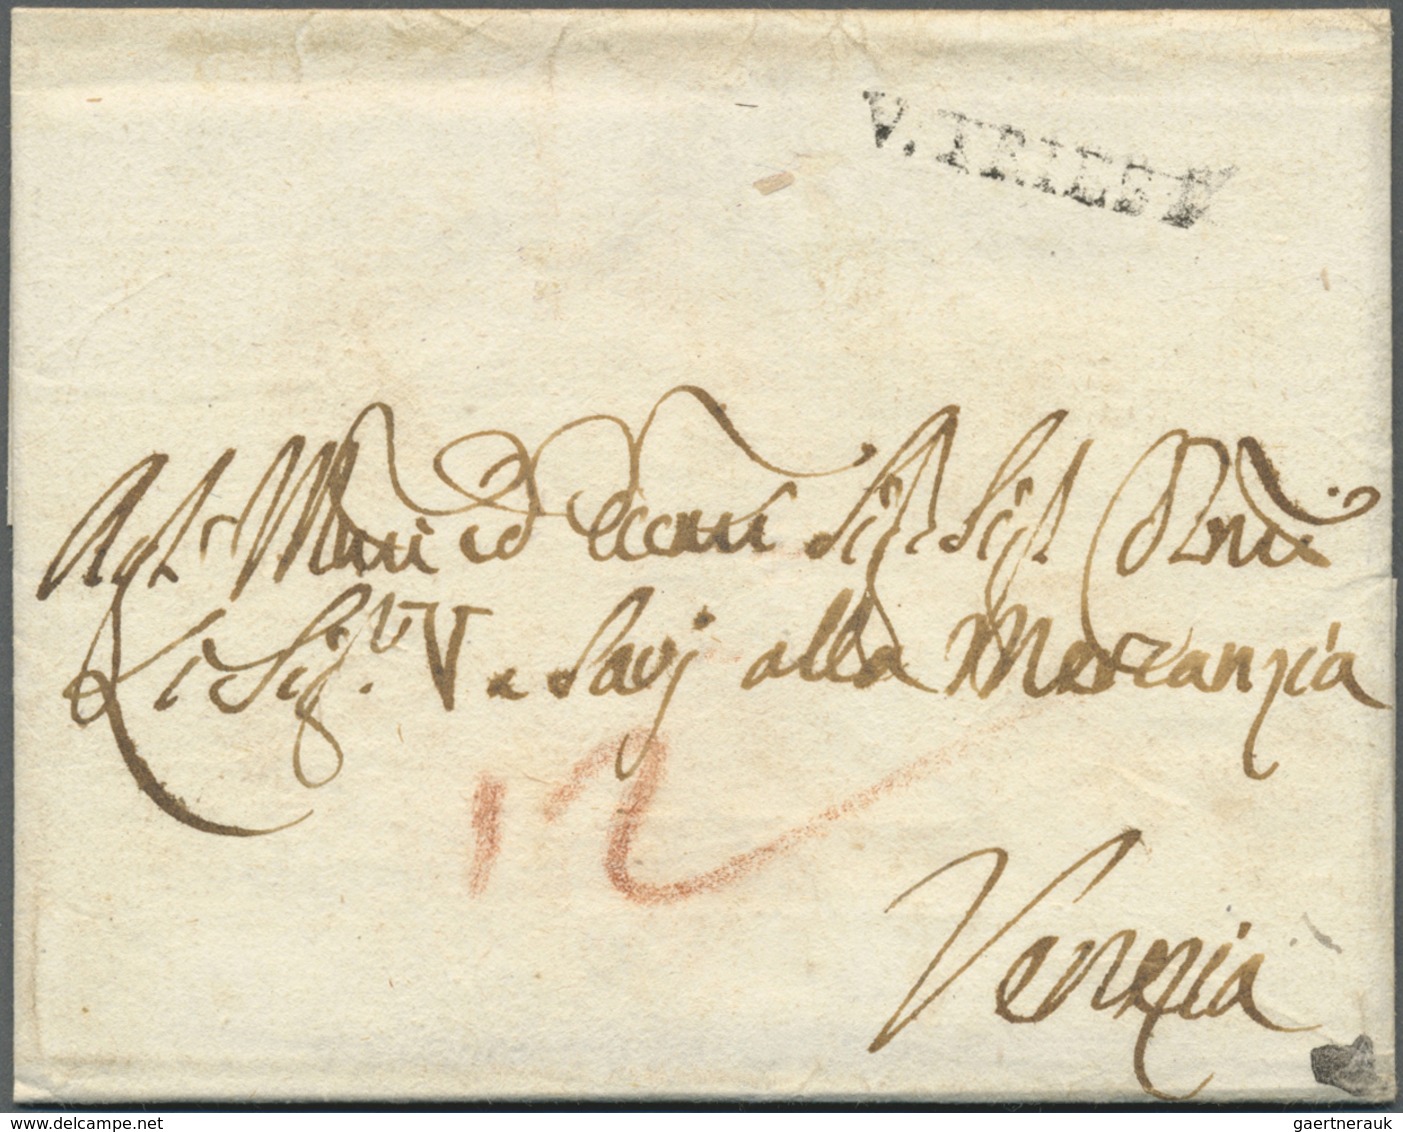 V. TRIEST
Agl' Illmi ed Eccmi Sigri Sigri
Li Sigri V e Savj alla Mercanzia
12
Venezia
www.delcampe.net
gaertnerauk